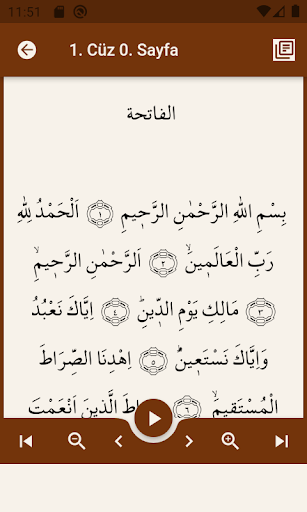 11:51
1. Cüz 0. Sayfa
الفاتحة
بِسْمِ اللهِ الرَّحْمٰنِ الرَّح۪يمِ ﴿١﴾ اَلْحَمْدُ لِلّٰهِ
رَبِّ الْعَالَم۪ينَۙ ﴿٢﴾ اَلرَّحْمٰنِ الرَّح۪يمِۙ
﴿٣﴾ مَالِكِ يَوْمِ الدّ۪ينِۜ ﴿٤﴾ اِيَّاكَ نَعْبُدُ
وَاِيَّاكَ نَسْتَع۪ينُۜ ﴿٥﴾ اِهْدِنَا الصِّرَاطَ
الْمُسْتَق۪يمَۙ ﴿٦﴾ الَّذ۪ينَ اَنْعَمْتَ